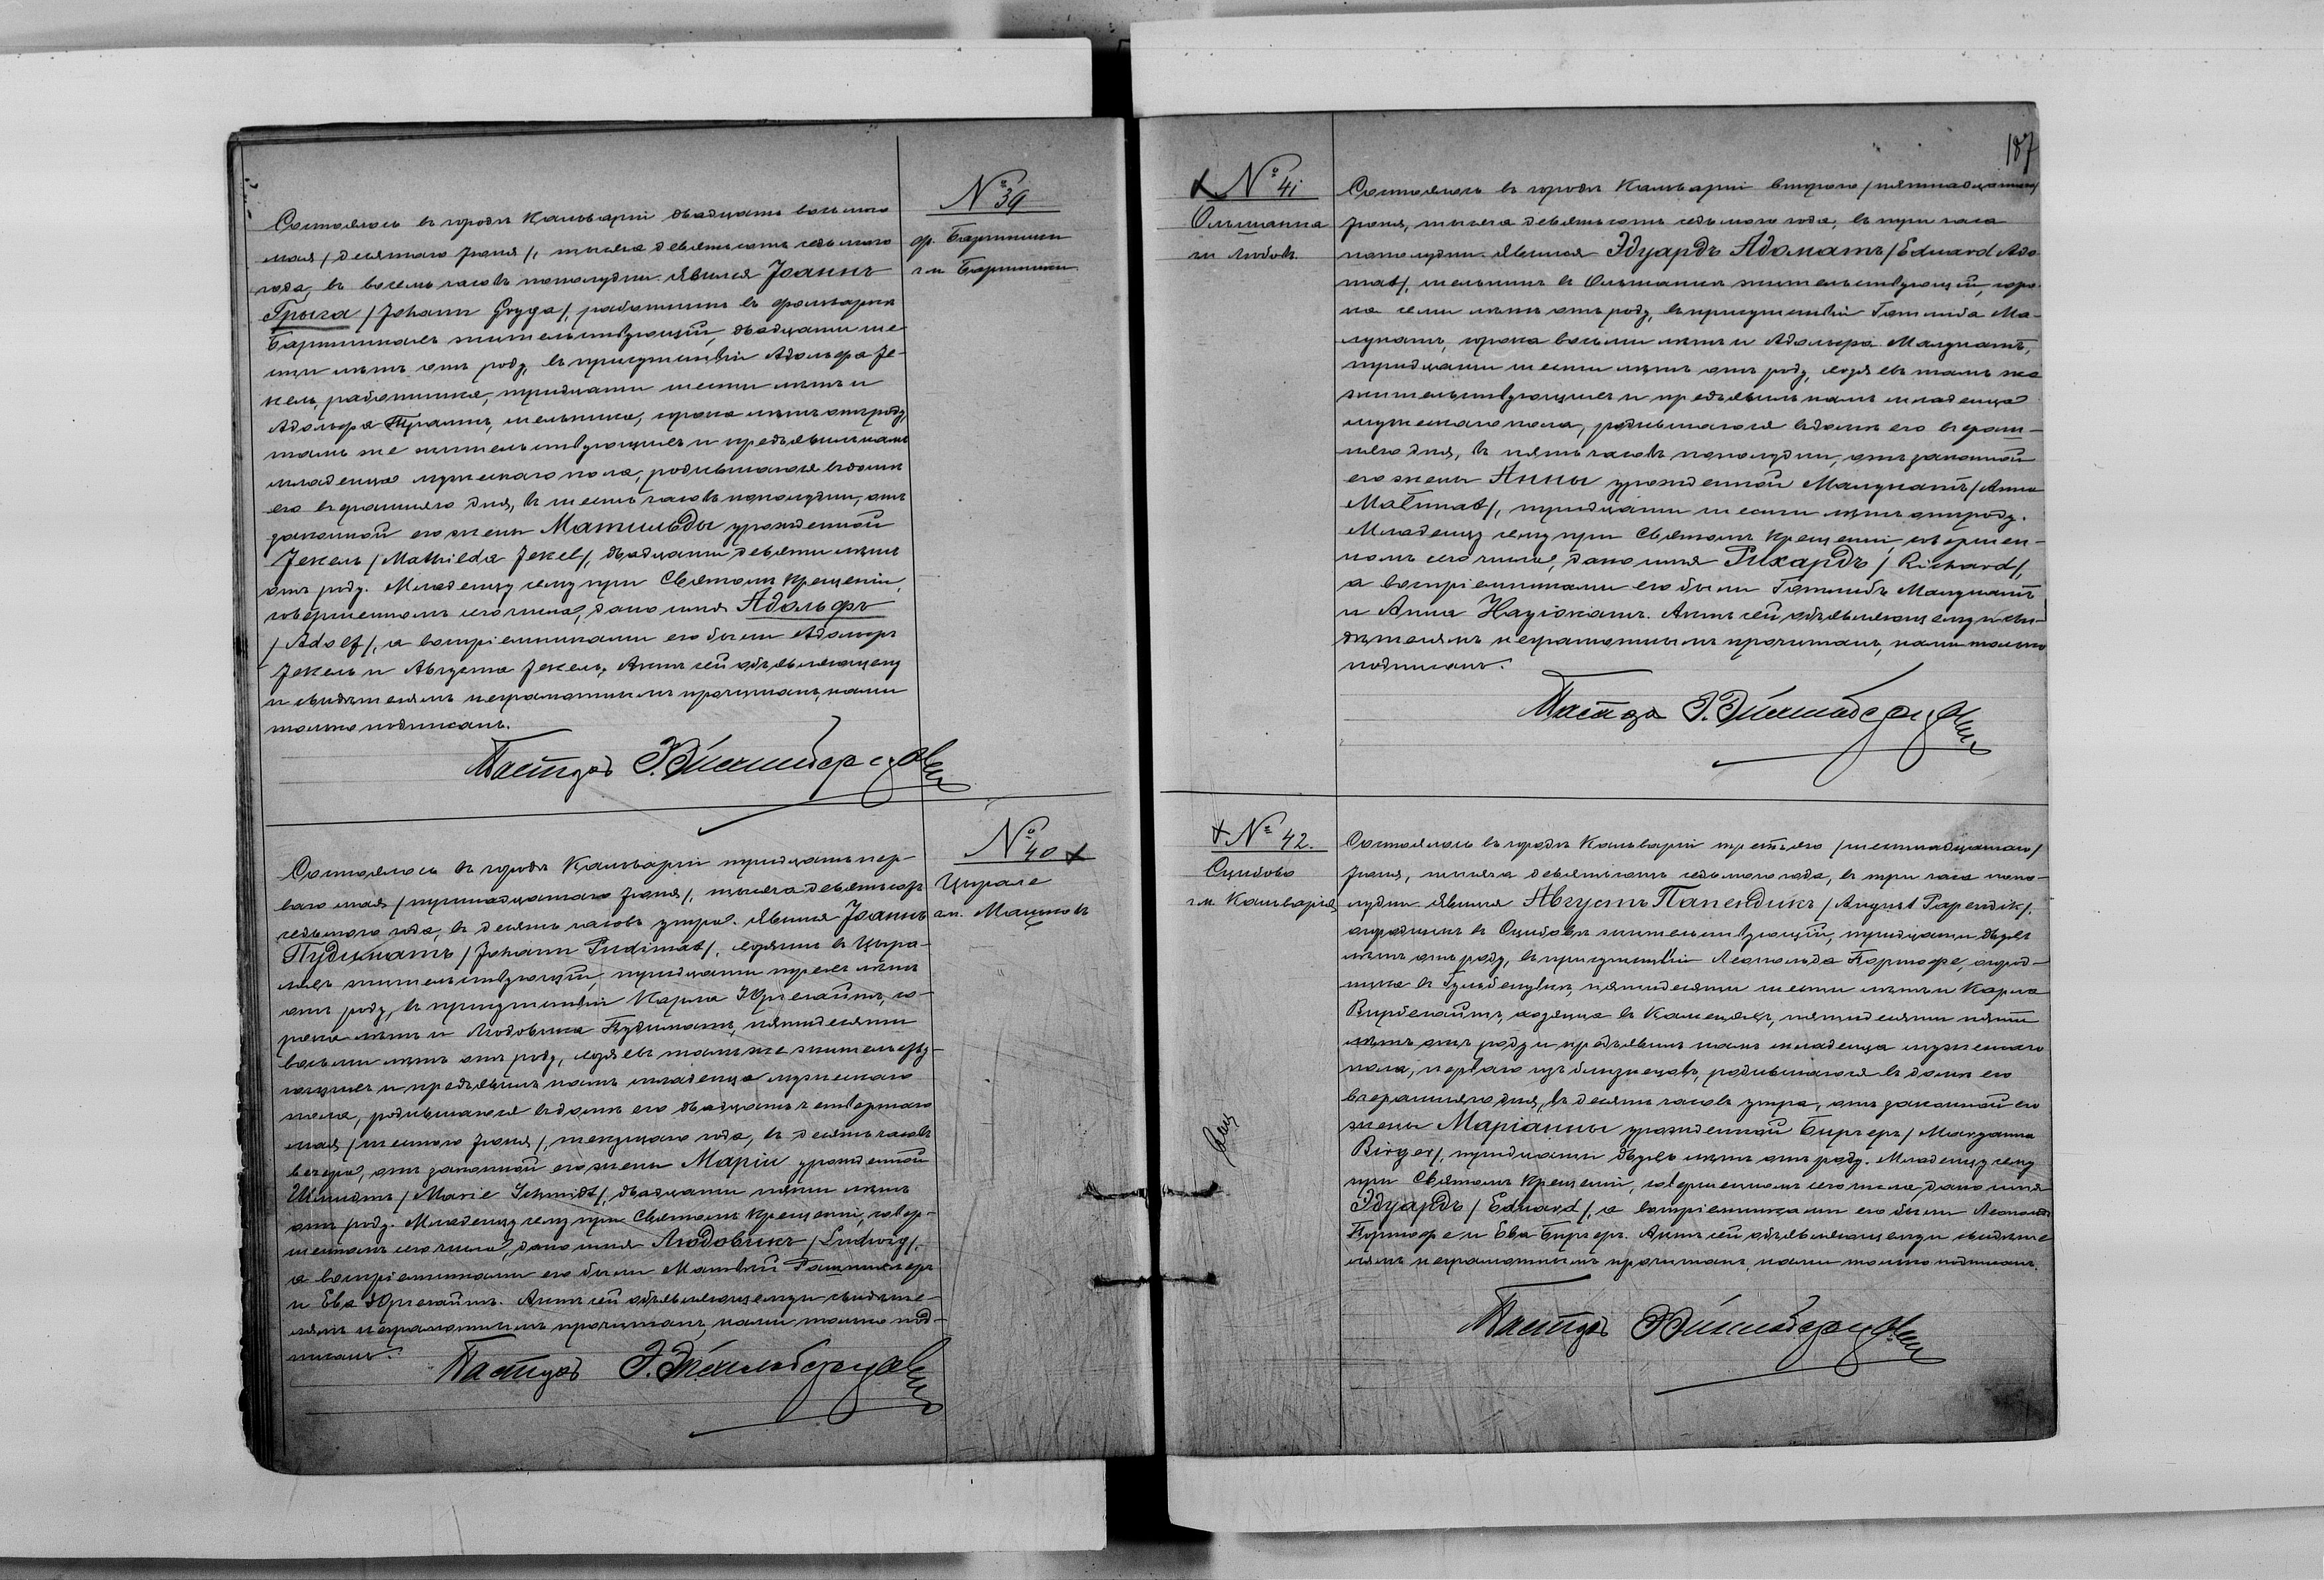 № 39
ф. Бартишки
гм. Бартишки
Состоялось въ городѣ Кальваріи двадцать восьмого
мая /десятаго Іюня/, тысяча девятьсотъ седьмого
года, въ восемь часовъ пополудни. Явился Іоаннъ
Грыга /Johann Gryga/, работникъ въ фольваркѣ
Бартишкахъ жительствующій, двадцати ше-
сти лѣтъ отъ роду, въ присутствіи Адольфа Іе-
кель, работника, тридцати шести лѣтъ и
Адольфа, мельника, сорока лѣтъ отъ роду,
тамъ же жительствующихъ и предъявилъ намъ
младенца мужескаго пола, родившагося въ домѣ
его вчерашняго дня, въ шесть часовъ пополудни, отъ
законной его жены Матильды урожденной
Іекель /Mathilde Jekel/, двадцати девяти лѣтъ
отъ роду. Младенцу сему при Святомъ Крещеніи,
совершенномъ сего числа, дано имя Адольфъ
/Adolf/, а воспріемниками его были Адольфъ
Іекель и Августа Іекель. Актъ сей объявляющему
и свидѣтелямъ неграмотнымъ прочитанъ, нами
только подписанъ.
Пасторъ
№ 40
Цырале
гм.
Состоялось въ городѣ Кальваріи тридцать пер-
ваго мая /тринадцатаго Іюня/, тысяча девятьсотъ
седьмого года, въ десять часовъ утра. Явился Іоаннъ
Пудиматъ /Johann Pudimat/, хозяинъ въ Цыра-
ляхъ жительствующій, тридцати трехъ лѣтъ
отъ роду, въ присутствіи Карла Юргелайтъ, со-
рока лѣтъ и Людовика Пудиматъ, пятидесяти
восьми лѣтъ отъ роду, хозяевъ тамъ же жительству-
ющихъ и предъявилъ намъ младенца мужескаго
пола, родившагося въ домѣ его двадцать четвертаго
мая /шестого Іюня/, текущаго года, въ десять часовъ
вечера, отъ законной его жены Маріи урожденной
Шмидтъ /Marie Schmidt/, двадцати пяти лѣтъ
отъ роду. Младенцу сему при Святомъ Крещеніи, совер-
шенномъ сего числа, дано имя Людовикъ /Ludwig/,
а воспріемниками его были Матвѣй
и Ева Юргелайтъ. Актъ сей объявляющему и свидѣте-
лямъ неграмотнымъ прочитанъ, нами только под-
писанъ.
Пасторъ
187
№ 41
Ольшанка
гм. Любовъ.
Состоялось въ городѣ Кальваріи второго /пятнадцатаго/
Іюня, тысяча девятьсотъ седьмого года, въ три часа
пополудни. Явился Эдуардъ Адоматъ /Eduard Ado-
mat/, мельникъ въ Ольшанкѣ жительствующій, соро-
ка семи лѣтъ отъ роду, въ присутствіи Готлиба Ма-
лунатъ, сорока восьми лѣтъ и Адольфа Малунатъ,
тридцати шести лѣтъ отъ роду, хозяевъ тамъ же
жительствующихъ и предъявилъ намъ младенца
мужескаго пола, родившагося въ домѣ его вчераш-
няго дня, въ пять часовъ пополудни, отъ законной
его жены Анны урожденной Малунатъ /Anna
Malunat/, тридцати шести лѣтъ отъ роду.
Младенцу сему при Святомъ Крещеніи, совершен-
номъ сего числа, дано имя Рихардъ /Richard/,
а воспріемниками его были Готлибъ Малунатъ
и Анна. Актъ сей объявляющему и сви-
дѣтелямъ неграмотнымъ прочитанъ, нами только
подписанъ.
Пасторъ
№ 42.
Сцибово
гм. Кальварія
Состоялось въ городѣ Кальваріи третьяго /шестнадцатаго/
Іюня, тысяча девятьсотъ седьмого года, въ три часа попо-
лудни. Явился Августъ Папендикъ /August Papendik/,
огородникъ въ Сцибовѣ жительствующій, тридцати двухъ
лѣтъ отъ роду, въ присутствіи Леопольда, огород-
ника въ, пятидесяти шести лѣтъ и Карла
Вирбелайтъ, хозяина въ, пятидесяти пяти
лѣтъ отъ роду и предъявилъ намъ младенца мужескаго
пола, перваго изъ близнецовъ, родившагося въ домѣ его
вчерашняго дня, въ десять часовъ утра, отъ законной его
жены Маріанны урожденной Биргеръ /Maryanna
Birger/, тридцати двухъ лѣтъ отъ роду. Младенцу сему
при Святомъ Крещеніи, совершенномъ сего числа, дано имя
Эдуардъ /Eduard/, а воспріемниками его были Леопольдъ
и Ева Биргеръ. Актъ сей объявляющему и свидѣте-
лямъ неграмотнымъ прочитанъ, нами только подписанъ.
Пасторъ